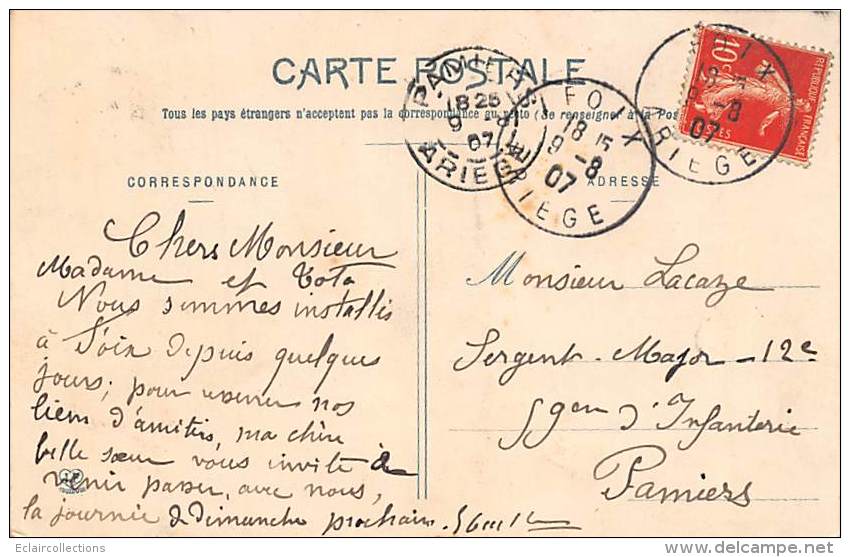 CARTE POSTALE
Tous les pays étrangers n'acceptent pas la correspondance au recto (Se renseigner à la Poste
CORRESPONDANCE
ADRESSE
PAMIERS
18 25
9 -8
07
ARIEGE
FOIX
18 15
9 -8
07
ARIEGE
FOIX
18 15
9 -8
07
ARIEGE
10 c
REPUBLIQUE FRANÇAISE
POSTES
Chers Monsieur
Madame et Tota
Nous sommes installés
à Foix depuis quelques
jours; pour resserrer nos
liens d'amitiés, ma chère
belle sœur vous invite à
venir passer, avec nous,
la journée d dimanche prochain.
Monsieur Lacaze
Sergent-Major - 12e
59em d'Infanterie
Pamiers
Eclaircollections
© delcampe.net